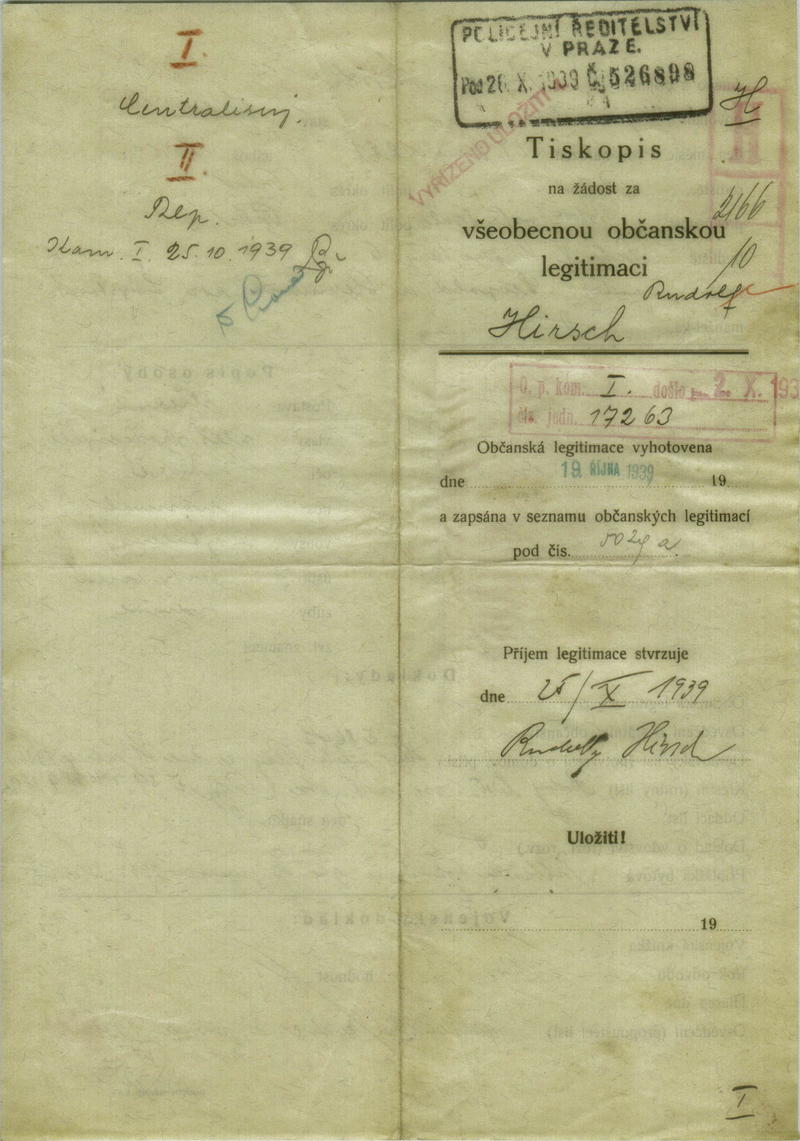 I.
Centralisuj.
II
Rep.
Kom. I. 25.10.1939
POLICEJNÍ ŘEDITELSTVÍ
V PRAZE.
Pod 26. X. 1939 Č. 526898
VYŘÍZENO ULOŽIT
H
II
Tiskopis
na žádost za
2166
všeobecnou občanskou
10
legitimaci
Rudolf
Hirsch
O. p. kom. I. došlo 2. X. 193
čís. jedn. 17263
Občanská legitimace vyhotovena
dne 19 ŘÍJNA 1939 19
a zapsána v seznamu občanských legitimací
pod čís.
Příjem legitimace stvrzuje
dne 25/X 1939
Rudolf Hirsch
Uložiti!
19
I